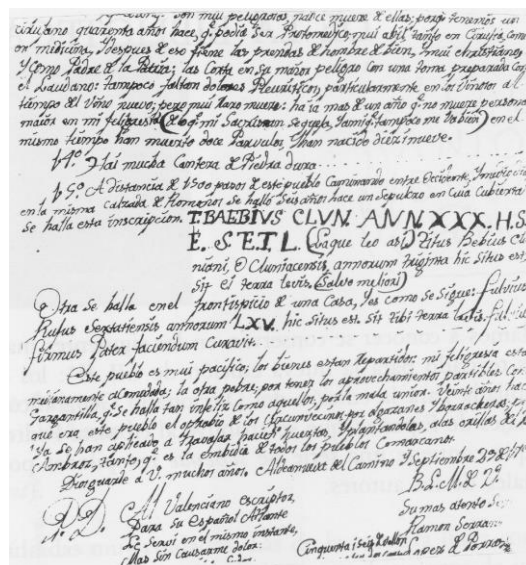 son mui peligrosas, nadie muere de ellas; porq tenemos un
cirujano quarenta años hace, q podia ser Protomedico, mui abil tanto en Cirujia, como
en medicina, y despues de eso tiene las prendas de hombre de bien, mui christiano,
y como Padre de la Patria; las Corta en su maior peligro con una toma preparada con
el Laudano: tampoco faltan dolores Pleuriticos, particularmente en los Vinotos al
tiempo del vino nuevo; pero mui raro muere: ha ia mas de un año q no muere persona
maior en mi feligresia en el
mismo tiempo han muerto doce Parvulos, y han nacido diez i nueve.
14º Hai mucha Cantera de Piedra dura
15º A distancia de 1500 pasos de este pueblo Caminando entre Occidente, y
en la misma calzada de Romanos se halló seis años hace un sepulcro en cuia cubierta
se halla esta inscripcion. T. BAEBIVS CLVN. ANN. XXX. H.S.
E. S. E T. L. (la que leo asi) Titus Bebius Clu
nioni, o Cluniacensis, annorum triginta hic situs est,
sit ei terra levis. (Salvo meliori)
Otra se halla en el frontispicio de una Casa, y es como se sigue: fulvius
Rufus annorum LXV. hic situs est. sit tibi terra levis.
firmus Pater faciendum Curavit.
Este pueblo es mui pacifico; los bienes estan repartidos: mi feligresia esta
medianamente acomodada; la otra pobre, por tener los aprovechamientos partibles con
Gargantilla, q se halla tan infeliz como aquellos, por la mala union. Veinte años ha
que era este pueblo el oprobio de los Circunvecinos, por olgazanes y
ya se han aplicado a travajar, hacer huertas, y plantandolas, a las orillas del
Ambroz, tanto, q es la embidia de todos los pueblos Comarcanos.
Dios guarde a V. muchos años. Aldeanueva del Camino y Septiembre 23 de
B. L. M. de V.
Al Valenciano escriptor,
Para su Español Atlante
Le Servi en el mismo instante,
Mas sin causarme dolor.
su mas atento
Ramon Serrano
Cinquenta i seis